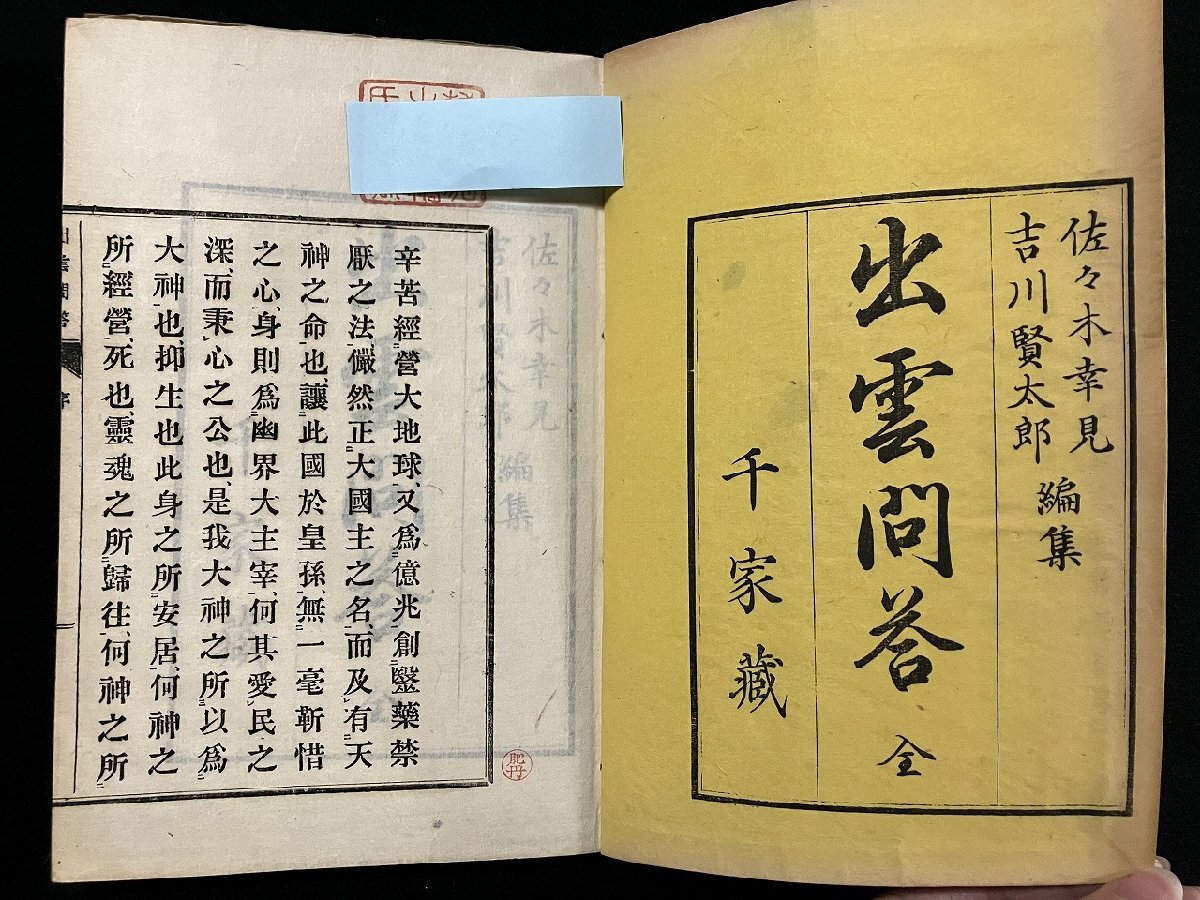 佐々木幸見
吉川賢太郎
編集
出雲問答 全
千家藏
辛苦經營大地球、又爲億兆創醫藥禁
厭之法、儼然正大國主之名、而及有天
神之命也、讓此國於皇孫、無一毫靳惜
之心、身則爲幽界大主宰、何其愛民之
深、而秉心之公也、是我大神之所以爲
大神也、抑生也此身之所安居、何神之
所經營、死也、靈魂之所歸往、何神之所